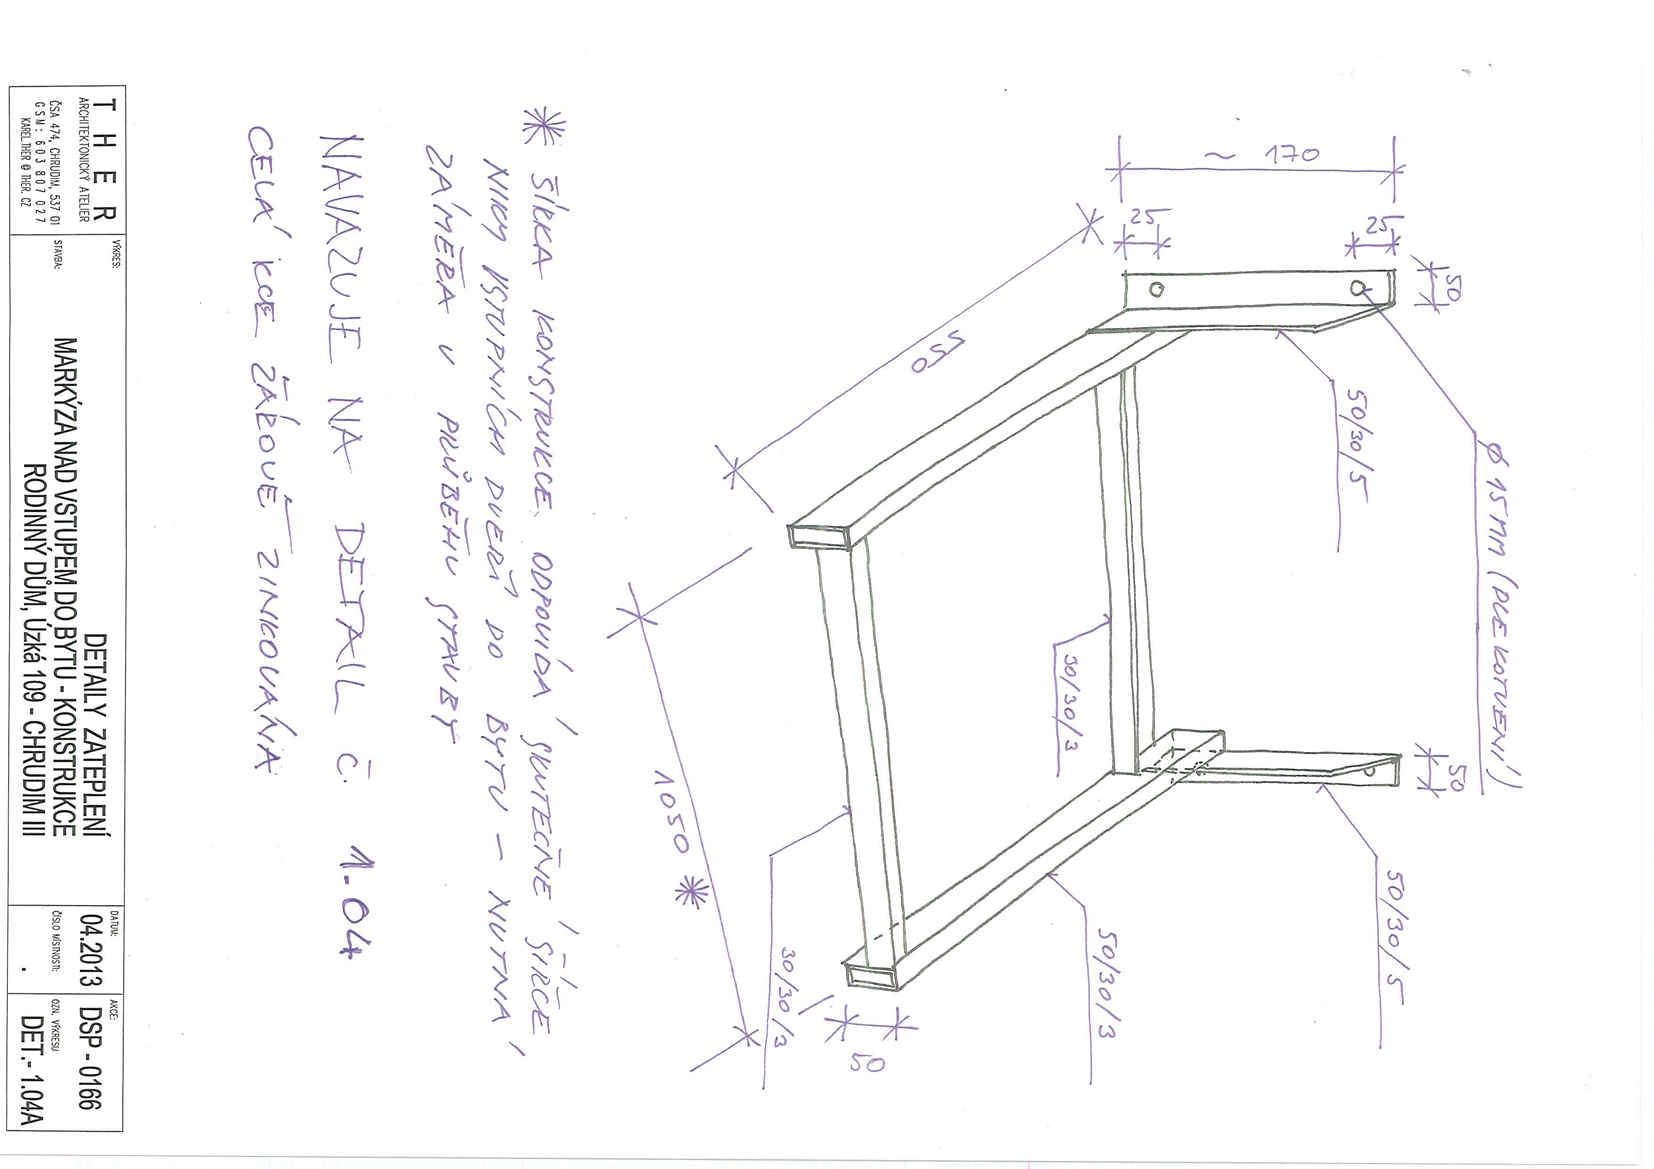 ~ 170
25
25
50
550
50/30/5
Ø 15 MM (PRE KOTVENÍ)
30/30/3
50
50/30/5
50/30/3
1050 *
30/30/3
50
* ŠÍŘKA KONSTRUKCE ODPOVÍDÁ SKUTEČNÉ ŠÍŘCE
NIKY VSTUPNÍCH DVEŘÍ DO BYTU – NUTNÁ
ZÁMĚRA V PRŮBĚHU STAVBY
NAVAZUJE NA DETAIL Č. 1.04
CELÁ KCE ŽÁROVĚ ZINKOVANÁ
THER
ARCHITEKTONICKÝ ATELIER
ČSA 474, CHRUDIM, 537 01
GSM: 603 807 027
KAREL.THER @ THER.CZ
VÝKRES:
DETAILY ZATEPLENÍ
MARKÝZA NAD VSTUPEM DO BYTU - KONSTRUKCE
STAVBA:
RODINNÝ DŮM, Úzká 109 - CHRUDIM III
DATUM:
04.2013
ČÍSLO MÍSTNOSTI:
.
AKCE:
DSP - 0166
OZN. VÝKRESU
DET.- 1.04A